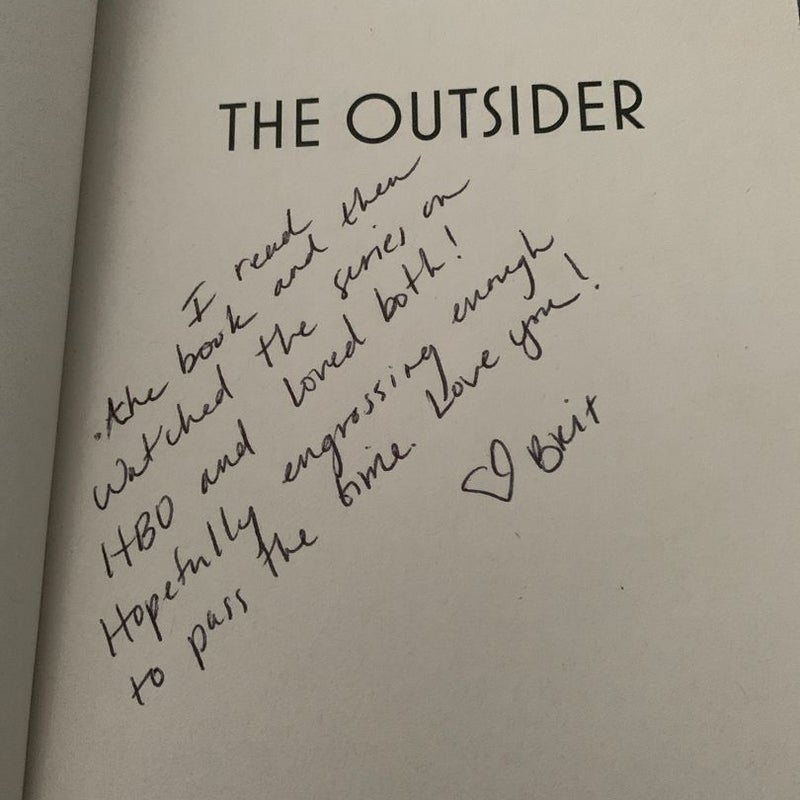 THE OUTSIDER
I read
the book and then
watched the series on
HBO and loved both!
Hopefully engrossing enough
to pass the time. Love you!
♡ Brit